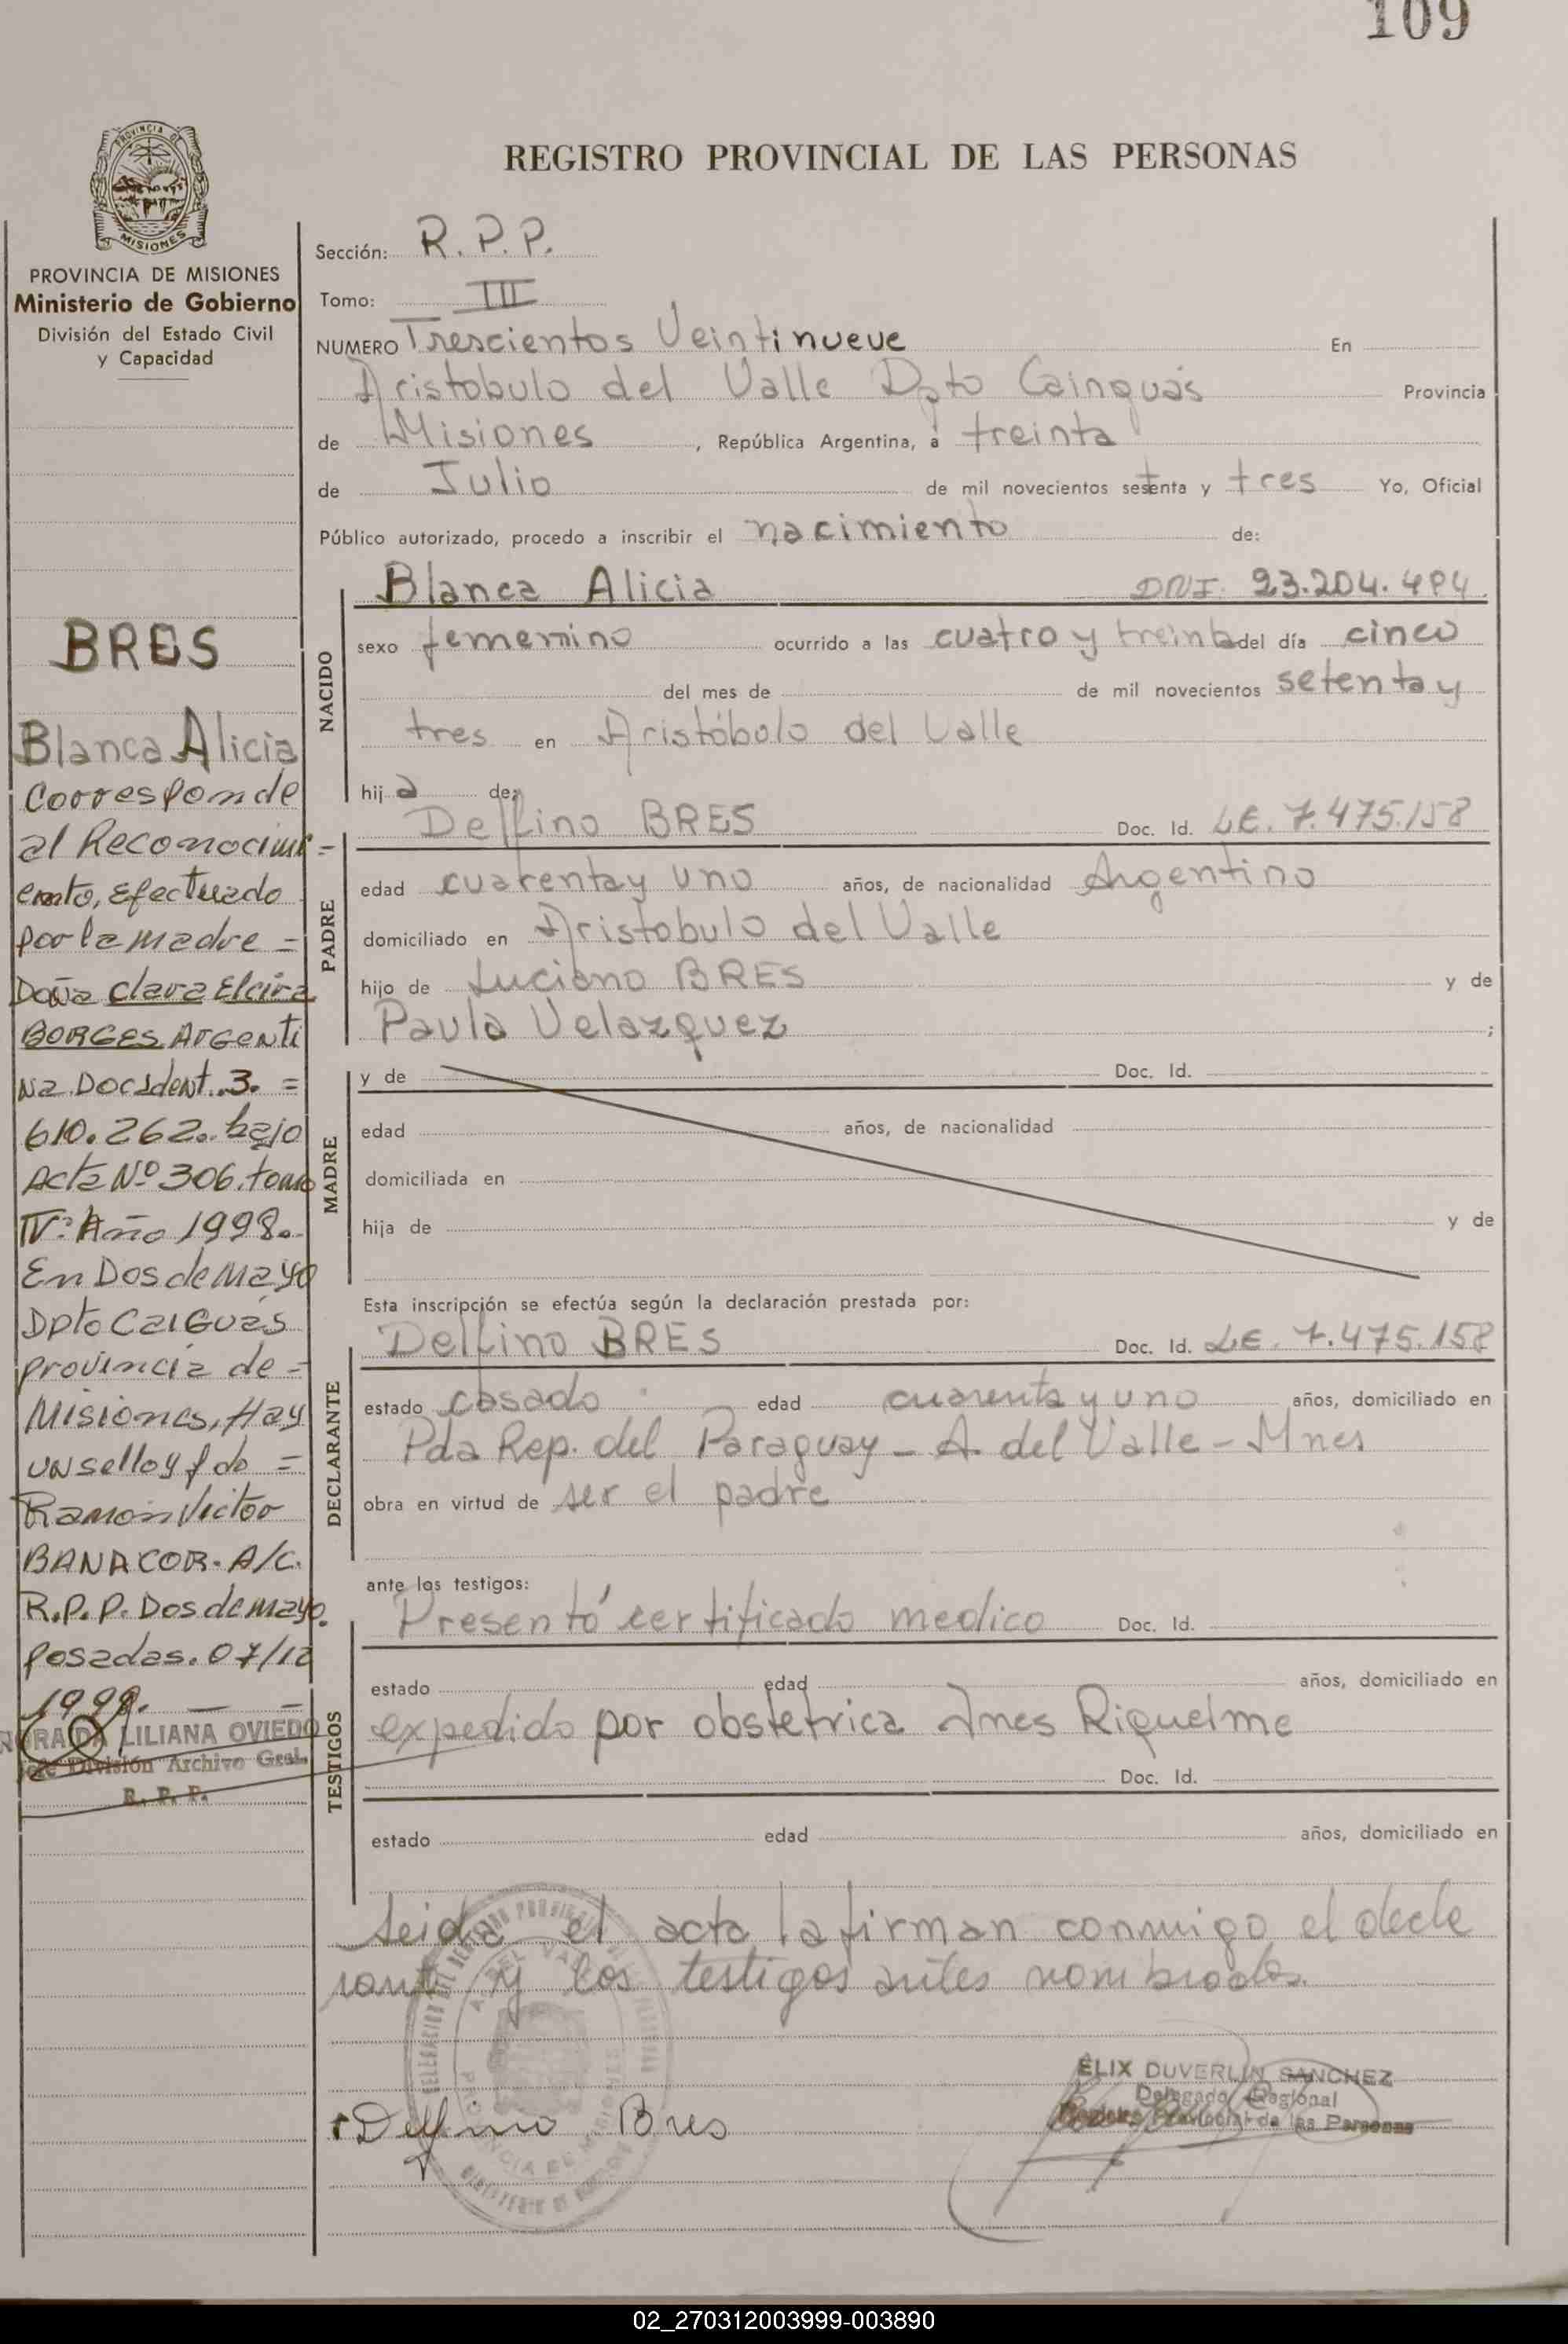 109
REGISTRO PROVINCIAL DE LAS PERSONAS
PROVINCIA DE
MISIONES
PROVINCIA DE MISIONES
Ministerio de Gobierno
División del Estado Civil
y Capacidad
BRES
Blanca Alicia
Corresponde
al Reconocimi=
ento, Efectuado
por la madre =
Doña Clara Elcira
BORGES ARGENTI
Na. Doc Ident. 3. =
610.262. bajo
Acta Nº 306. tomo
IV: Año 1998.
En Dos de Mayo
Dpto CaiGuás
provincia de =
Misiones, Hay
un sello y fdo =
Ramón Victor
BANACOR. A/C.
R.P.P. Dos de mayo.
posadas. 07/12
1998. — =
LILIANA OVIEDO
Jefe División Archivo Gral.
R. P. P.
Sección: R. P. P.
Tomo: III
NUMERO Trescientos Veintinueve En
Aristobulo del Valle Dpto Cainguás Provincia
de Misiones, República Argentina, a treinta
de Julio de mil novecientos setenta y tres Yo, Oficial
Público autorizado, procedo a inscribir el nacimiento de:
NACIDO
Blanca Alicia DNI. 23.204.484
sexo femenino ocurrido a las cuatro y treinta del día cinco
del mes de de mil novecientos setenta y
tres en Aristóbulo del Valle
hija de:
PADRE
Delfino BRES Doc. Id. LE. 7.475.158
edad cuarenta y uno años, de nacionalidad Argentino
domiciliado en Aristobulo del Valle
hijo de Luciano BRES y de
Paula Velazquez ;
MADRE
y de Doc. Id.
edad años, de nacionalidad
domiciliada en
hija de y de
Esta inscripción se efectúa según la declaración prestada por:
DECLARANTE
Delfino BRES Doc. Id. LE. 7.475.158
estado casado edad cuarenta y uno años, domiciliado en
Pda Rep. del Paraguay - A. del Valle - Mnes
obra en virtud de ser el padre
ante los testigos:
TESTIGOS
Presentó certificado medico Doc. Id.
estado edad años, domiciliado en
expedido por obstetrica Ines Riquelme
Doc. Id.
estado edad años, domiciliado en
Leida el acta la firman conmigo el decla
rante y los testigos antes nombrados.
Delfino Bres
ELIX DUVERLIN SANCHEZ
Delegado Regional
Registro Provincial de las Personas
02_270312003999-003890